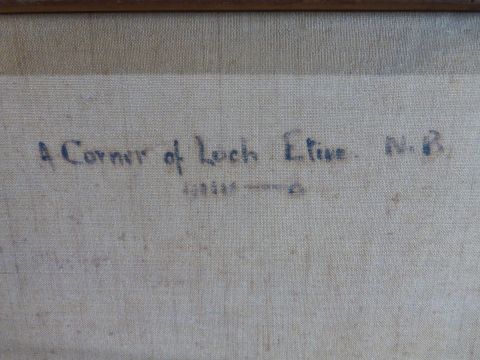 A Corner of Loch Etive. N.B.